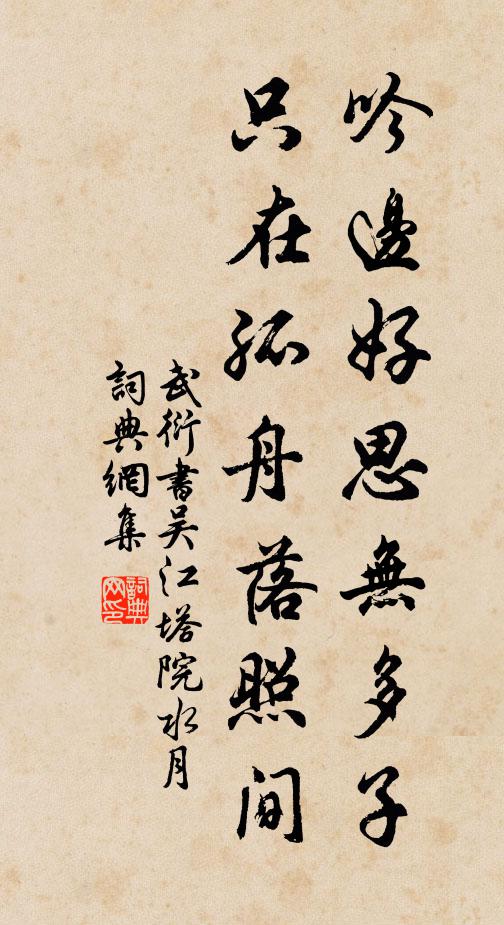 吟邊好思無多子
只在孤舟落照間
武衍書吳江塔院水月
詞典網集
詞典網印